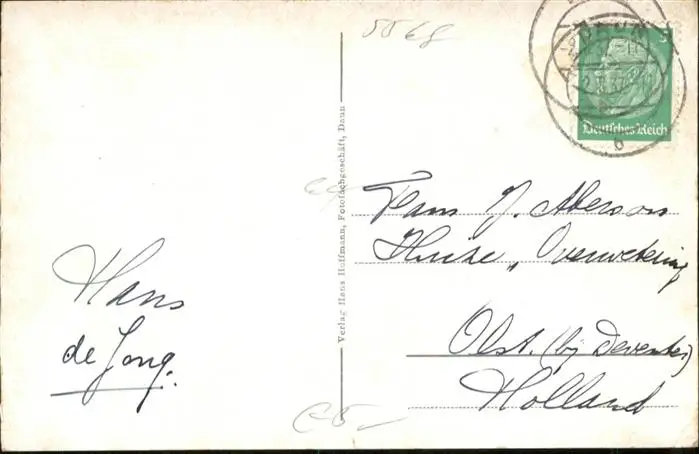 Hans
de Jong.
Verlag Hans Hoffmann, Fotofachgeschäft, Daun
DAUN
5
Deutsches Reich
b
Fam J. Aberson
Huize „Overwetering
Olst. (bij Deventer)
Holland